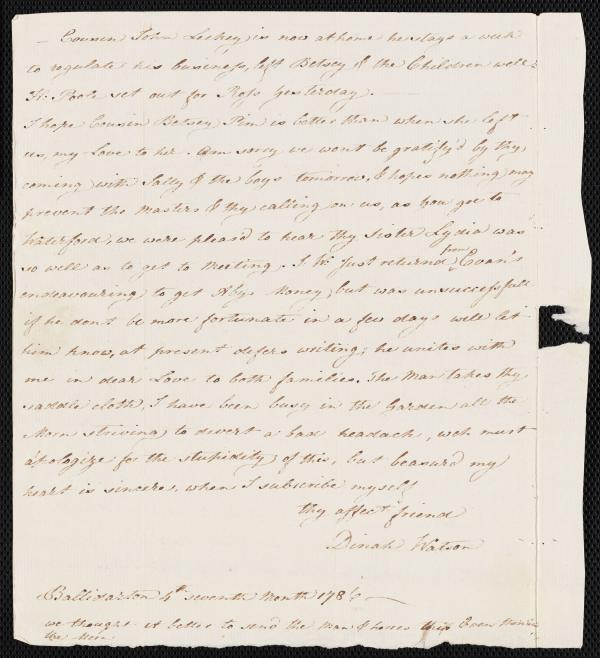 – Cousin John Leckey is now at home he stays a week
to regulate his business, left Betsey & the Children well
H: Poole set out for Ross yesterday. –
I hope Cousin Betsey Pim is better than when she left
us, my Love to her. Am sorry we wont be gratify'd by thy
coming with Sally & the boys tomorrow, & hopes nothing may
prevent the Masters & thy calling on us, as you goe to
Waterford, we were pleas'd to hear thy Sister Lydia was
so well as to get to Meeting. J W just return'd from Evan's
endeavouring to get Money, but was unsuccessfull
if he dont be more fortunate in a few days will let
him know, at present defers writing; he unites with
me in dear Love to both families. The Man takes thy
saddle cloth, I have been busy in the Garden all the
Morn striving to divert a bad headach, wch must
apologize for the stupidity of this, but beasur'd my
heart is sincere, when I subscribe myself
thy affect friend
Dinah Watson
Ballidarton 4th seventh Month 178
we thought it better to send the Man & horses this Even than
the Morn